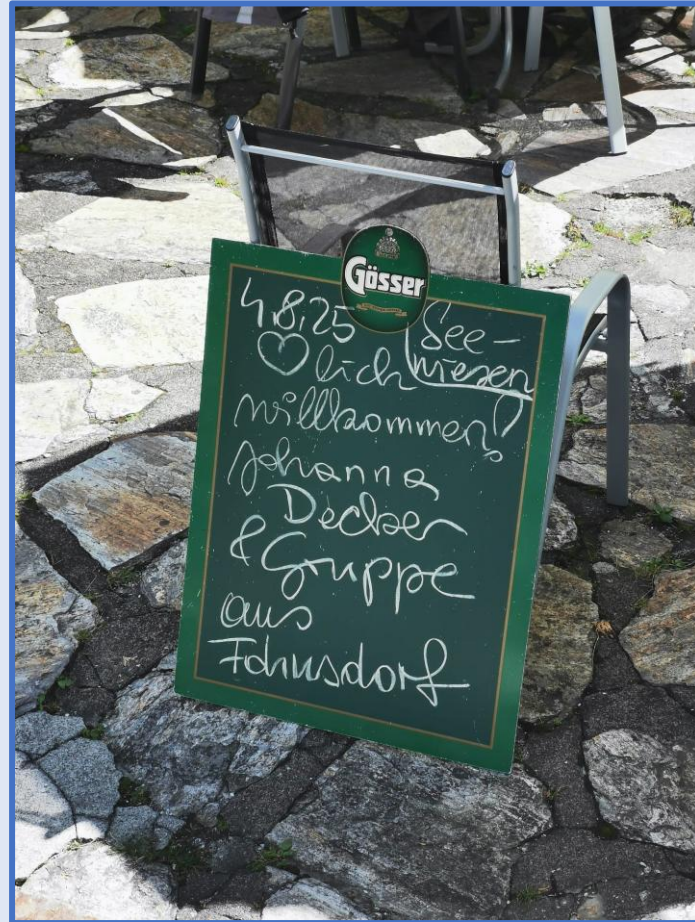 Gösser
4.8.25 See-
♡lich wiesen
willkommen!
Johanna
Decker
& Gruppe
aus
Fohnsdorf